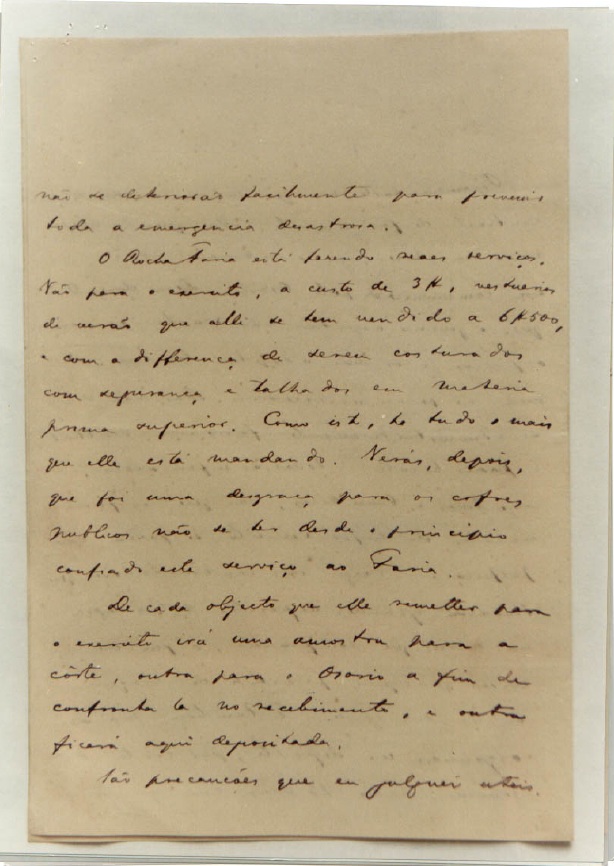 não se deteriorás facilmente para prevenir
toda a emergencia desastrosa.
O Rocha Faria está fazendo reaes serviços.
Vão para o exercito, a custo de 3$, vestuarios
de verão que alli se tem vendido a 6$500,
e com a differença de serem costurados
com segurança e talhados em materia
prima superior. Como isto, he tudo o mais
que elle está mandando. Verás, depois,
que foi uma desgraça para os cofres
publicos não se ter desde o principio
confiado este serviço ao Faria.
De cada objecto que elle remetter para
o exercito irá uma amostra para a
côrte, outra para o Osorio a fim de
confronta la no recebimento, e outra
ficará aqui depositada.
São precauções que eu julguei uteis.